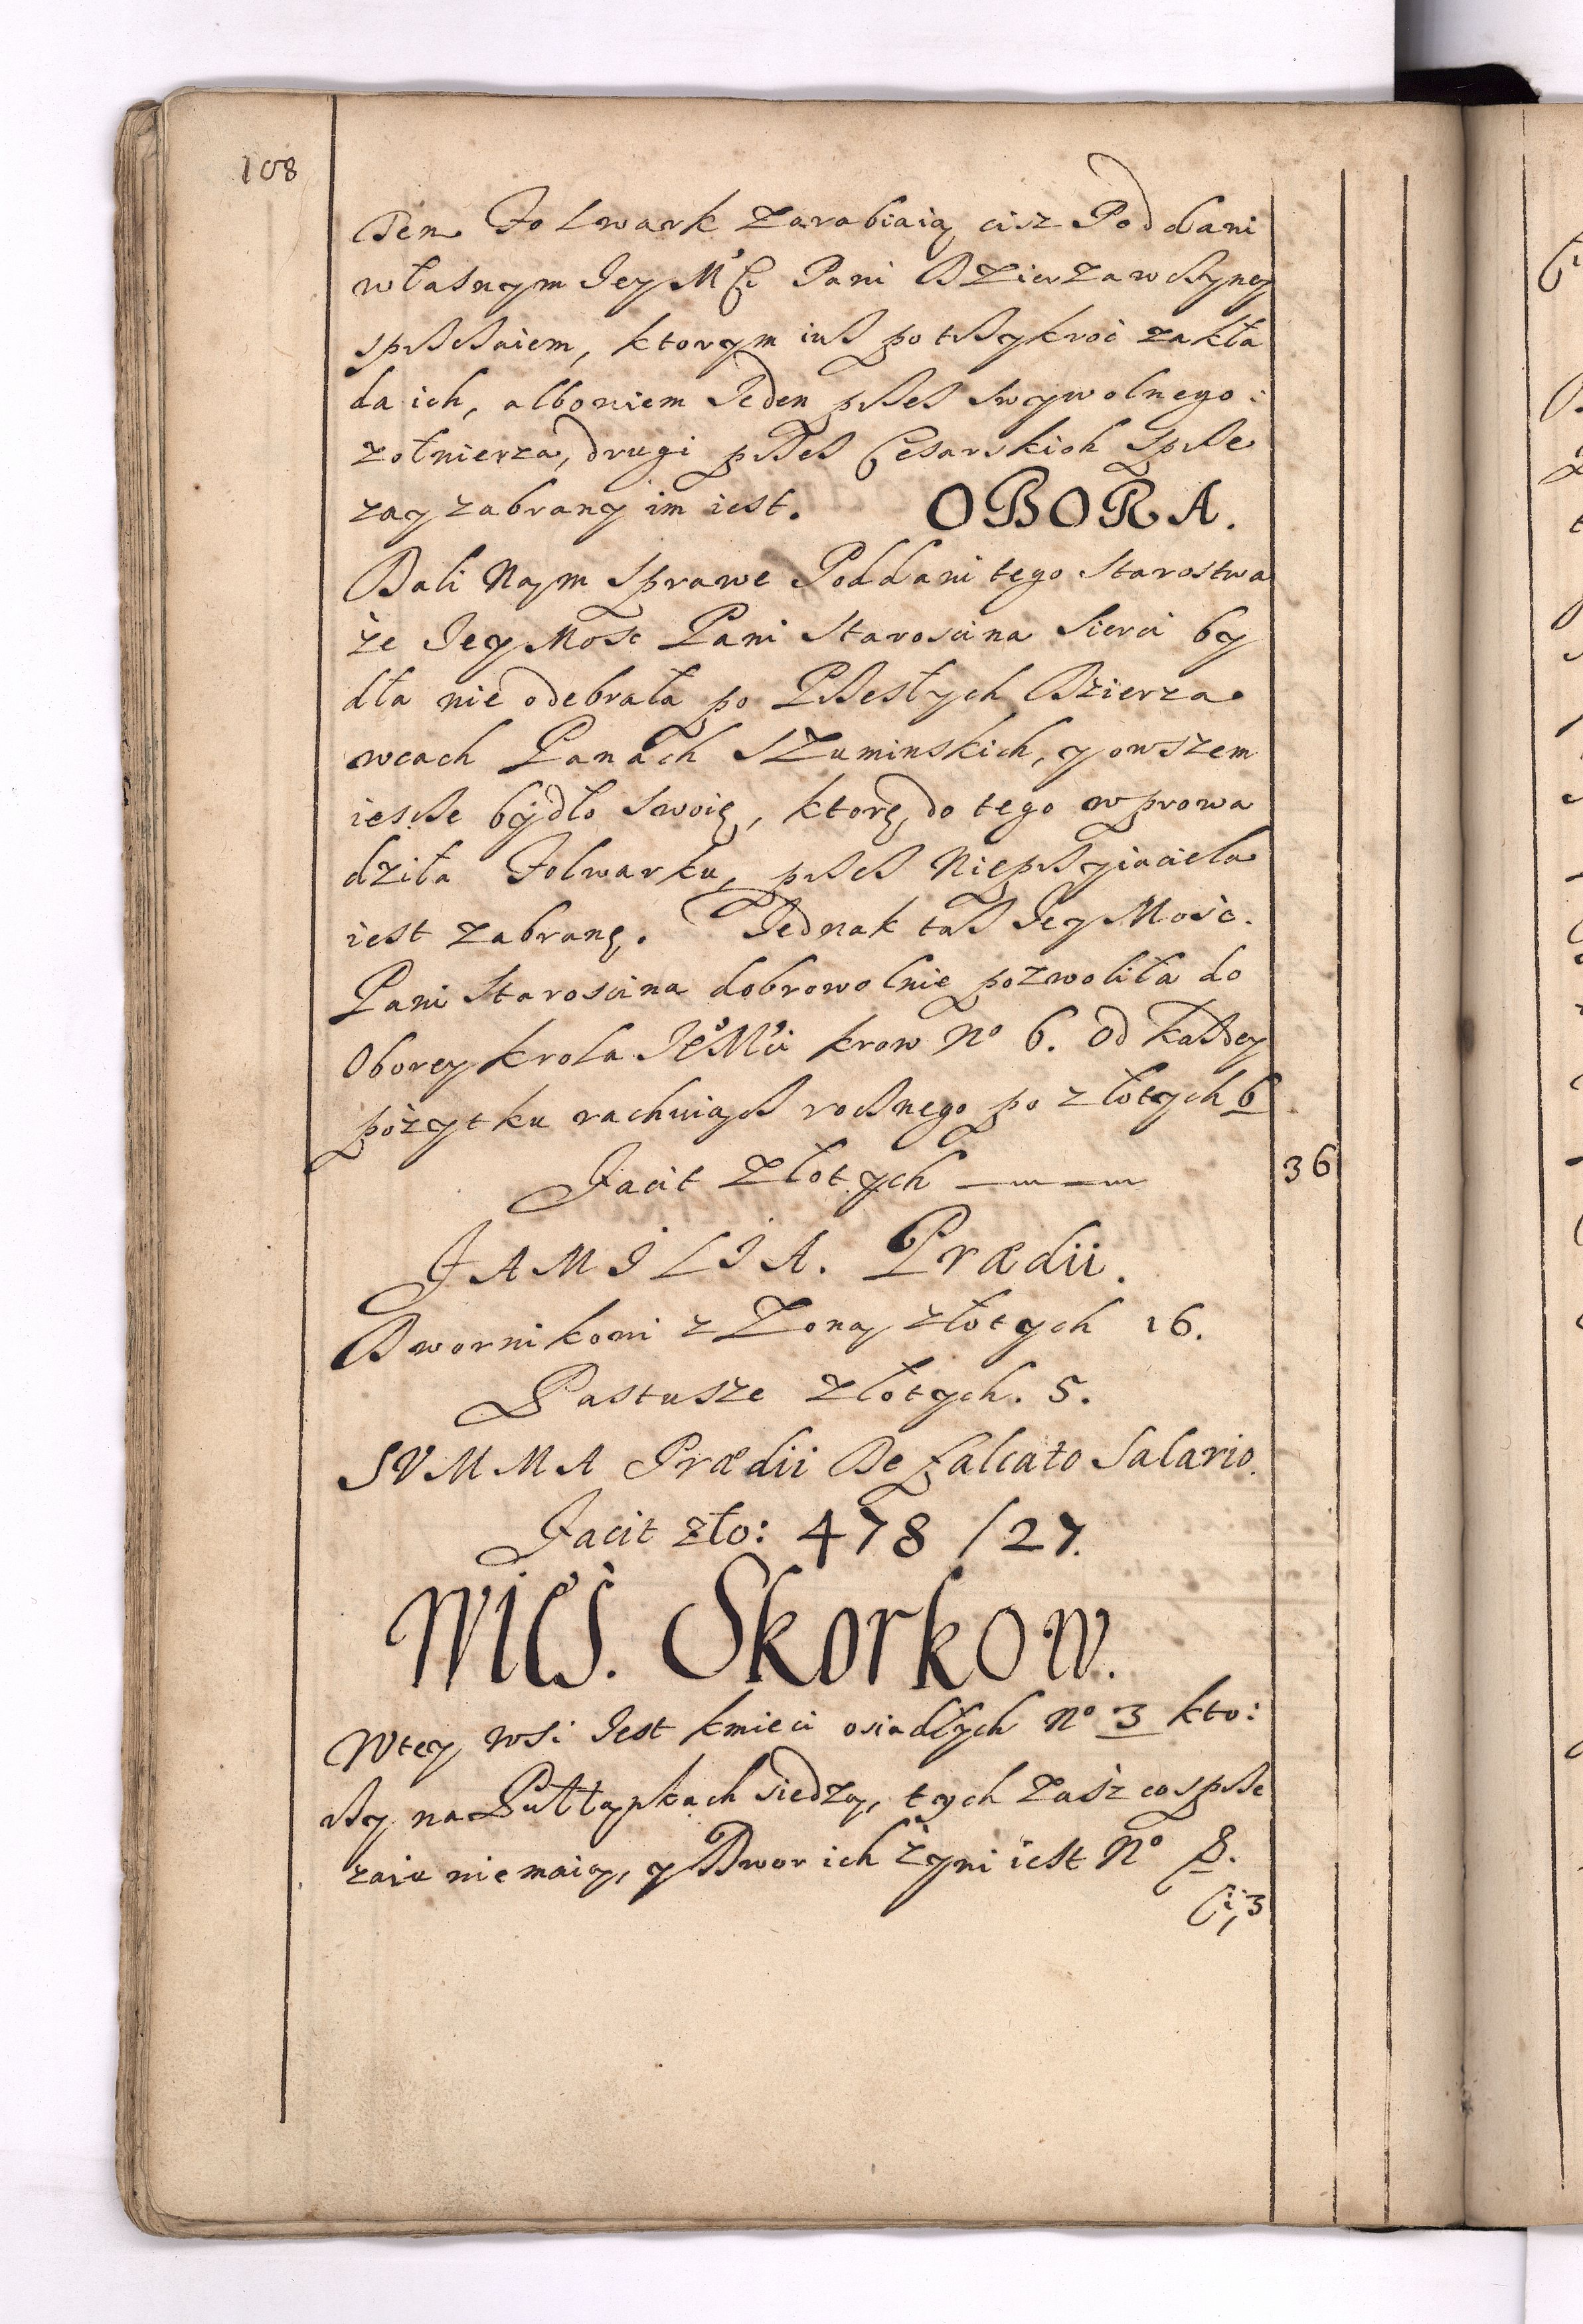 108
Ten Folwark zarabiaią cisz Poddani
własnym Jey Mći Pani Dzierzawczyney
sprzezaiem, ktorym iuz po trzykroć zakła
da ich, albowiem Jeden przez swywolnego
zołnierza, drugi przez Cesarskich sprze
zay zabrany im iest. OBORA.
Dali Nam sprawe Poddani tego Starostwa
że Jey Mość Pani Starościna sierci by
dła nie odebrała po Przeszłych Dzierza
wcach Panach Szuminskich, y owszem
ieszcze bydło swoię, ktorę do tego wprowa
dziła Folwarku, przez Nieprzyiaciela
iest zabranę. Jednak taż Jey Mość
Pani Starościna dobrowolnie pozwoliła do
Obory krola JEMci krow No 6. Od każdey
pożytku rachuiąc rocznego po złotych 6
Facit Złotych 36
FAMILIA. Prædii.
Dwornikowi z Zoną złotych 16.
Pastusze złotych. 5.
SVMMA Prædii Defalcato Salario.
Facit zło: 478 /27.
WIEŚ. Skorkow.
W tey wsi Jest kmieci osiadłych No 3 kto:
rzy na Pułłankach siedzą, tych zaśz co sprze
zaiu nie maią, y Dwor ich żywi iest No 8.
Ci, 3